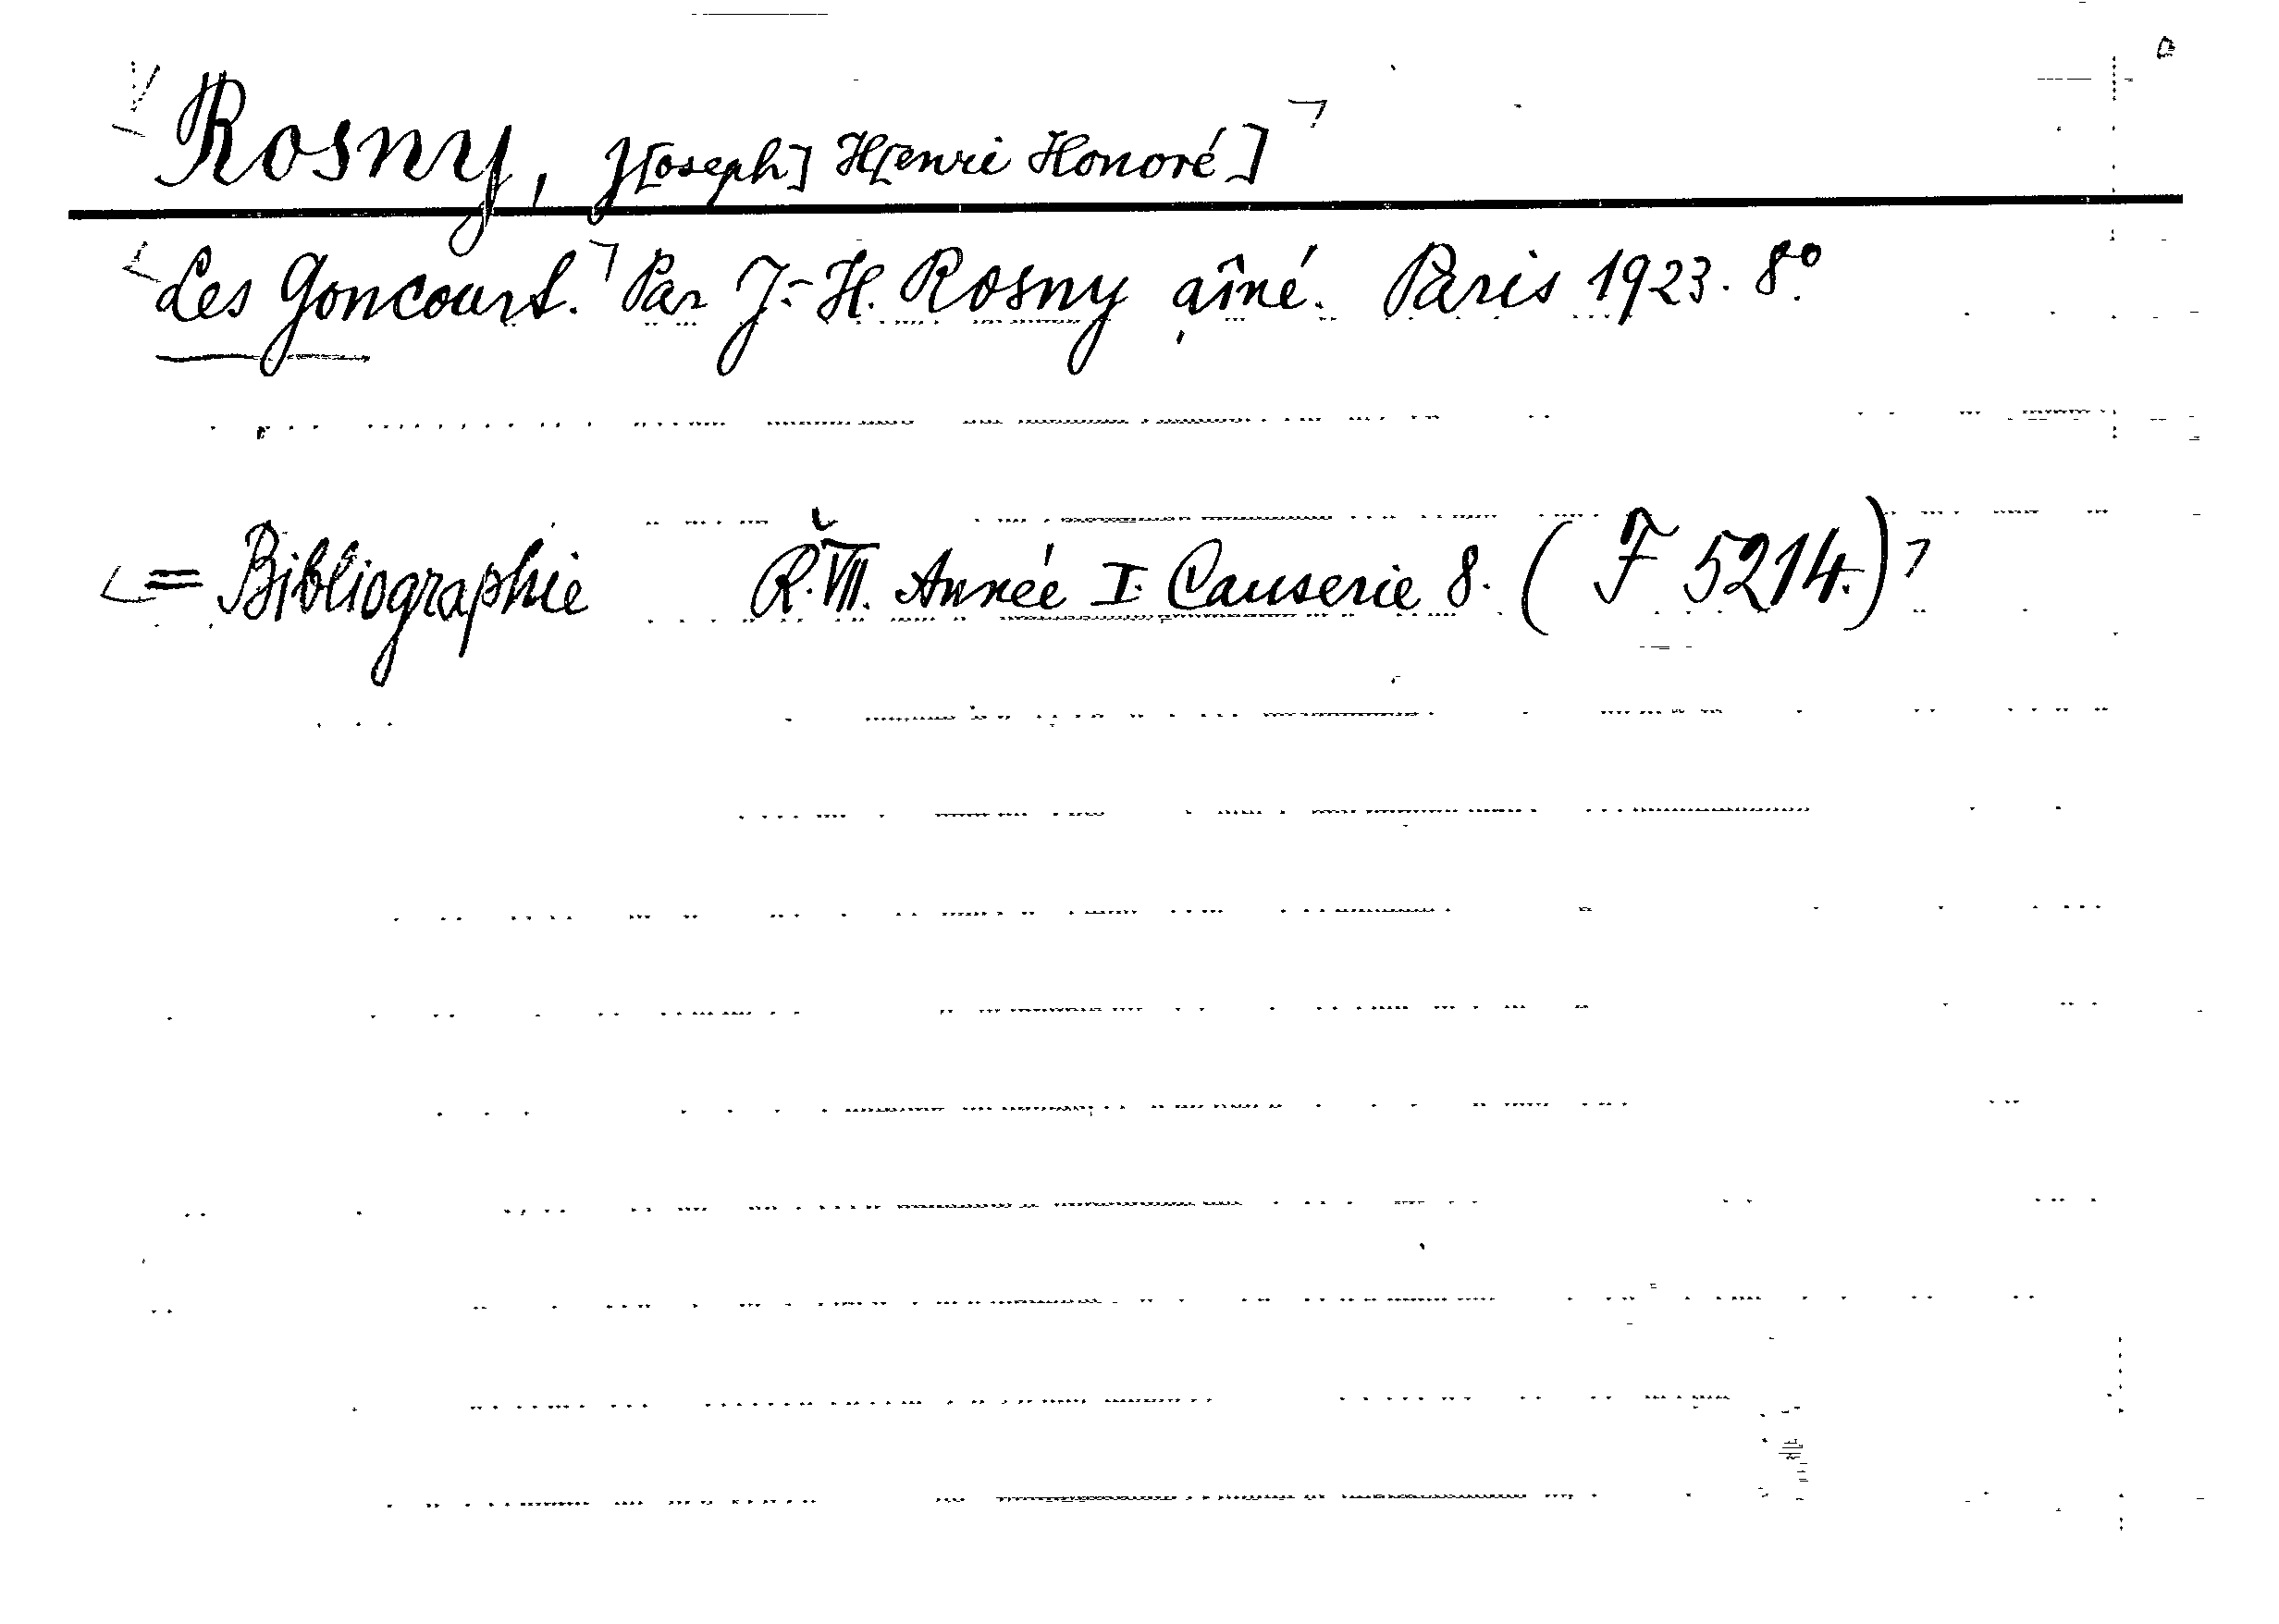 Rosny, J[oseph] H[enri Honoré]
Les Goncourt. Par J.-H. Rosny aîné. Paris 1923. 8°.
= Bibliographie R. VII. Année I. Causerie 8. (F 5214.)